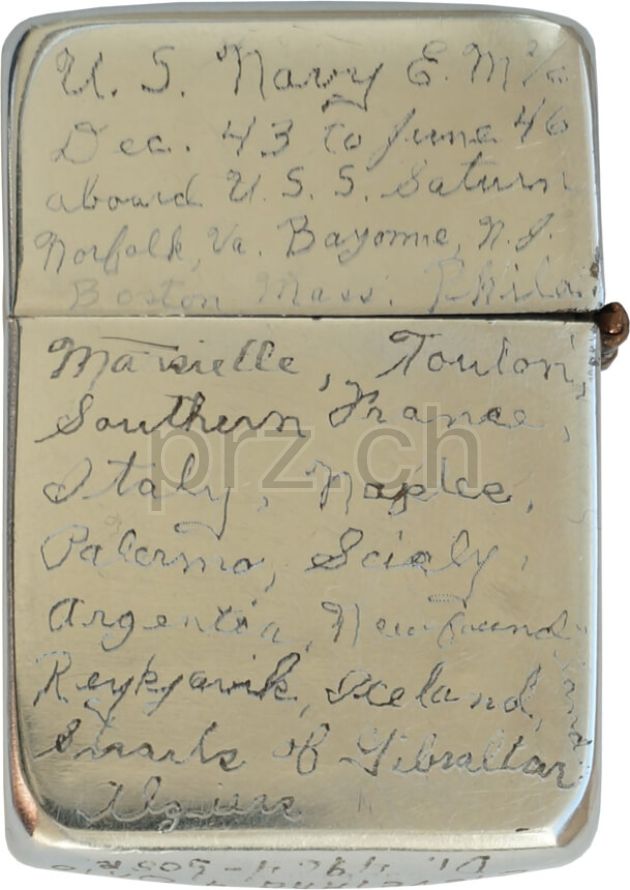 U. S. Navy E. M 2/c
Dec. 43 to June 46
aboard U. S. S. Saturn
Norfolk, Va. Bayonne, N. J.
Boston Mass. Phila.
Marsielle, Toulon,
Southern France,
Italy, Naples,
Palermo, Scialy,
Argentia, Newfoundland
Reykjavik, Iceland,
Straits of Gibraltar
Algiers
prz.ch